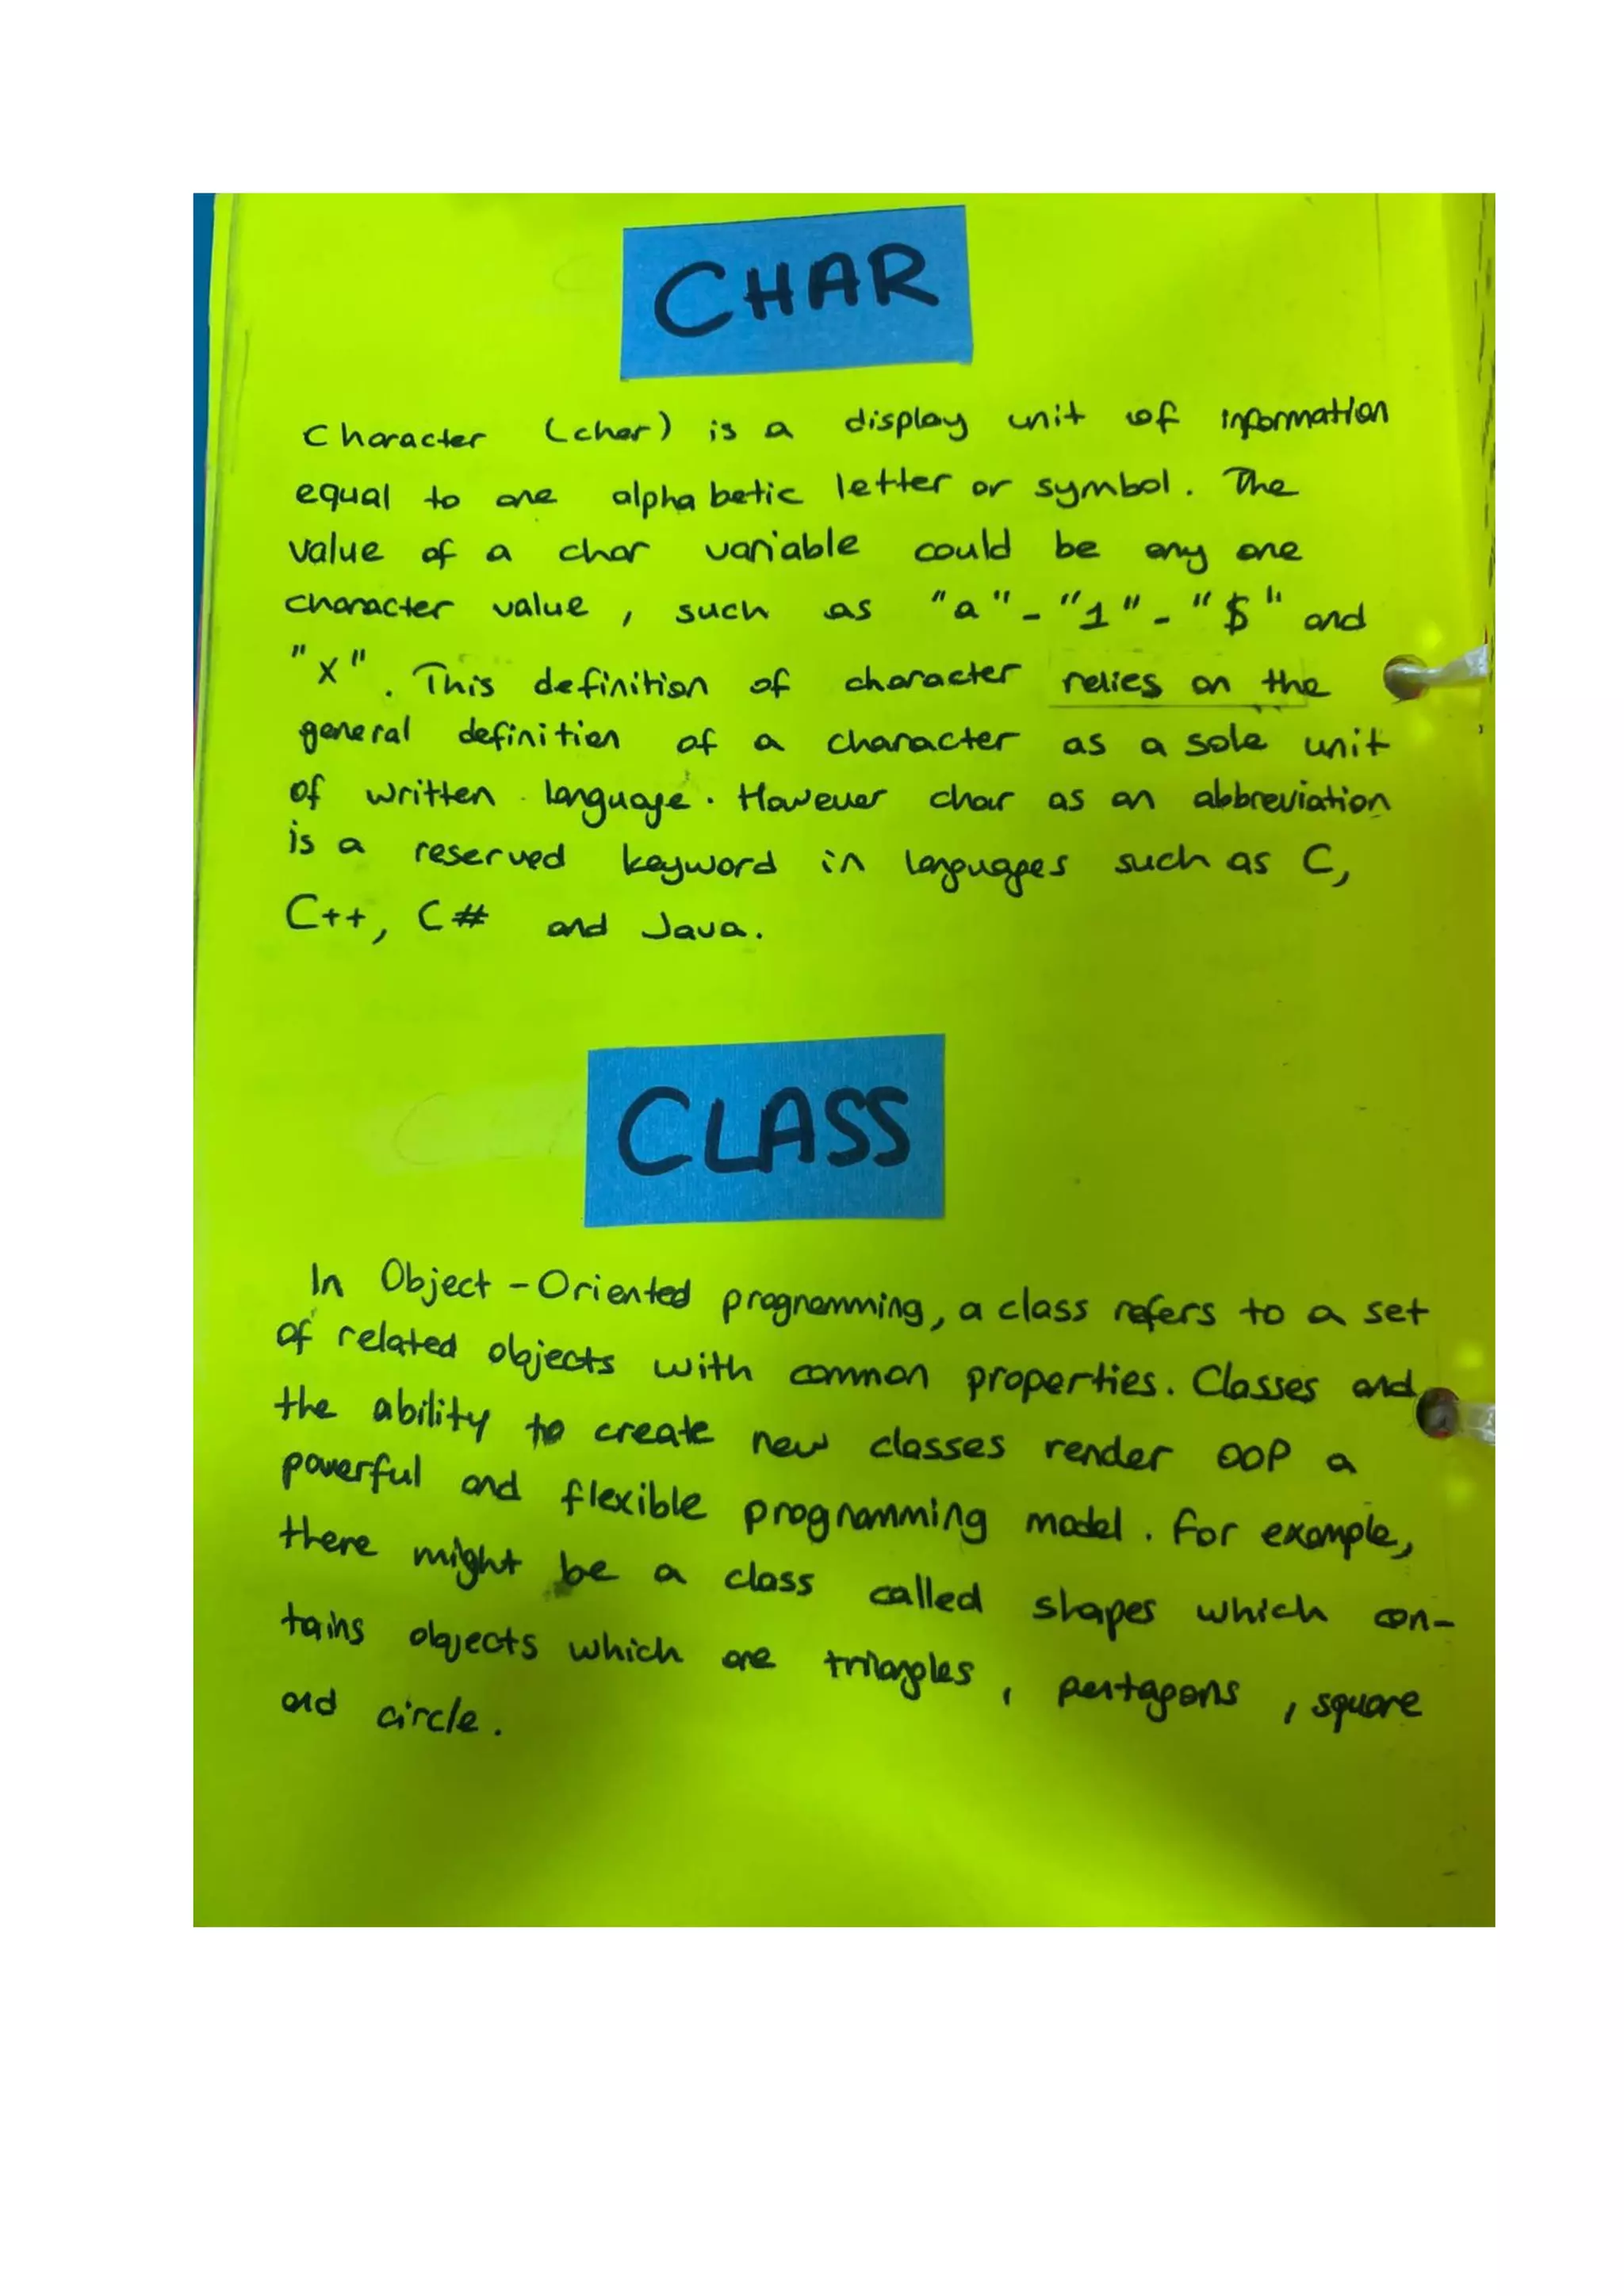 CHAR
Character (char) is a display unit of information
equal to one alphabetic letter or symbol. The
value of a char variable could be any one
character value, such as "a" - "1" - "$" and
"x". This definition of character relies on the
general definition of a character as a sole unit
of written language. However char as an abbreviation
is a reserved keyword in languages such as C,
C++, C# and Java.
CLASS
In Object-Oriented programming, a class refers to a set
of related objects with common properties. Classes and
the ability to create new classes render OOP a
powerful and flexible programming model. For example,
there might be a class called shapes which con-
tains objects which are triangles, pentagons, square
and circle.